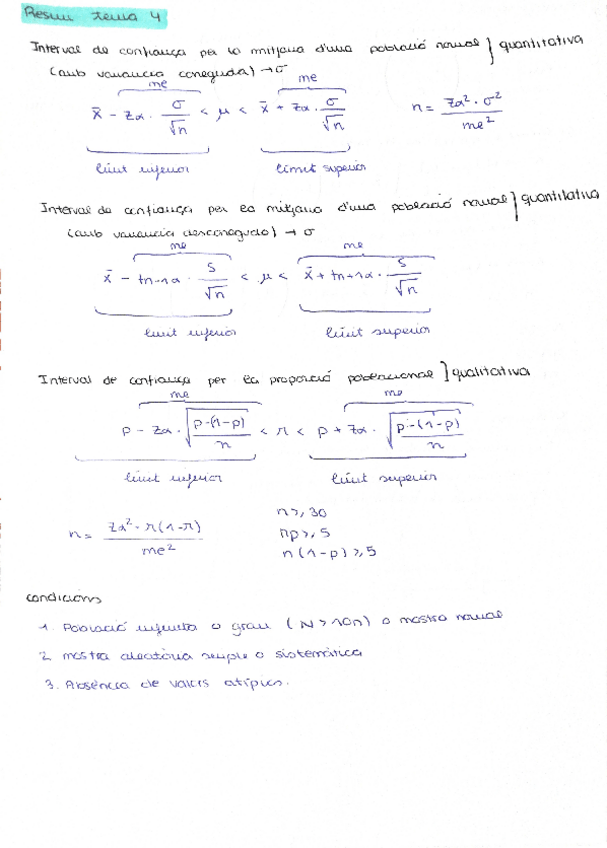 Resum tema 4
Interval de confiança per la mitjana d'una població normal } quantitativa
(amb variancia coneguda) → σ
me me
x̄ - zα · σ/√n < μ < x̄ + zα · σ/√n n = zα² · σ² / me²
límit inferior límit superior
Interval de confiança per la mitjana d'una població normal } quantitativa
(amb variancia desconeguda) → σ
me me
x̄ - tn-1α · S/√n < μ < x̄ + tn-1α · S/√n
límit inferior límit superior
Interval de confiança per la proporció poblacional } qualitativa
me me
p - zα · √(p·(1-p)/n) < π < p + zα · √(p·(1-p)/n)
límit inferior límit superior
n = zα² · π(1-π) / me²
n ≥ 30
np ≥ 5
n(1-p) ≥ 5
condicions
1. Població infinita o gran (N > 10n) o mostra normal
2 mostra aleatòria simple o sistemàtica
3. Absència de valors atípics.